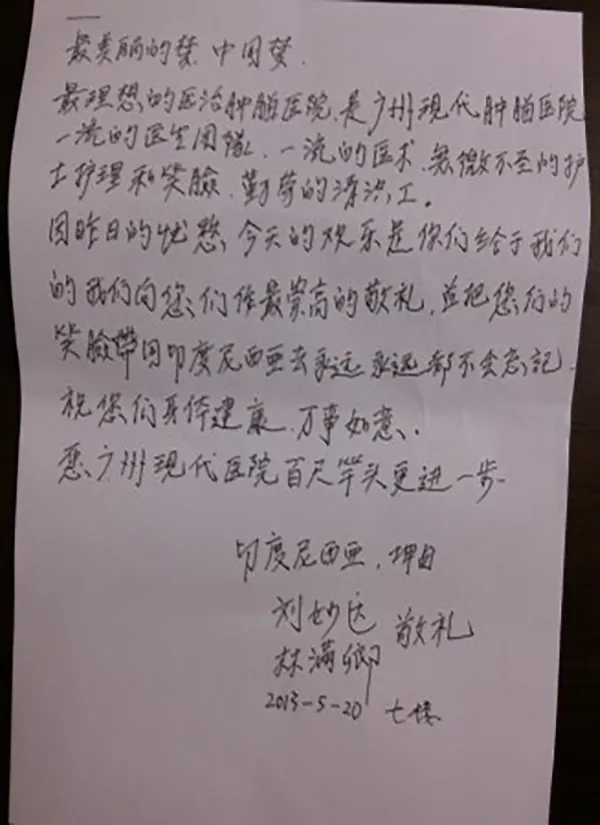 最美丽的梦,中国梦.
最理想的医治肿脑医院,是广州现代肿脑医院
一流的医生团隊、一流的医术.無微不至的护
士护理和笑臉.勤劳的清洁工。
因昨日的忧愁,今天的欢乐是你们给于我们
的我们向您们作最崇高的敬礼,並把您们的
笑臉帶回印度尼西亜去永远永远都不会忘記.
祝您们身体建康.万事如意.
愿广州现代医院百尺竿头更进一步.
印度尼西亜.坤甸
刘妙达
敬礼
林满卿
2013-5-20 七楼